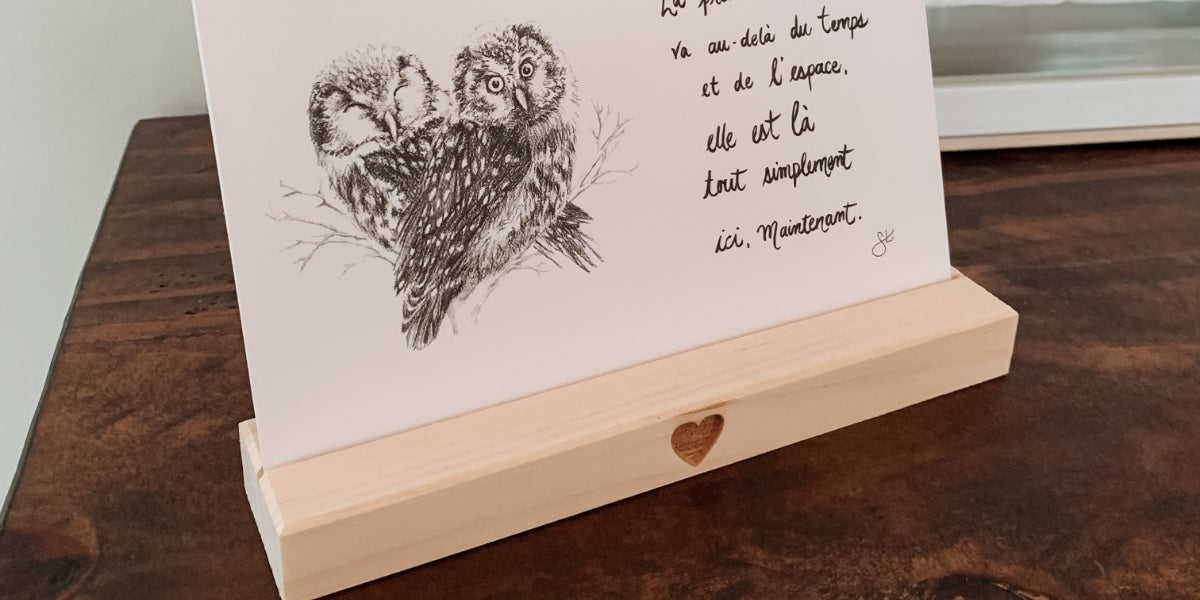 La
va au-delà du temps
et de l'espace,
elle est là
tout simplement
ici, Maintenant.
SK